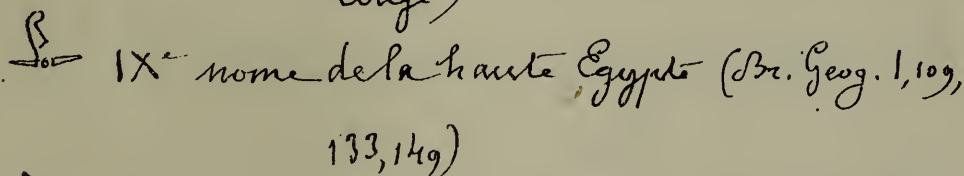 IXe nome de la haute Égypte (Br. Geog. 1, 109,
133, 149)